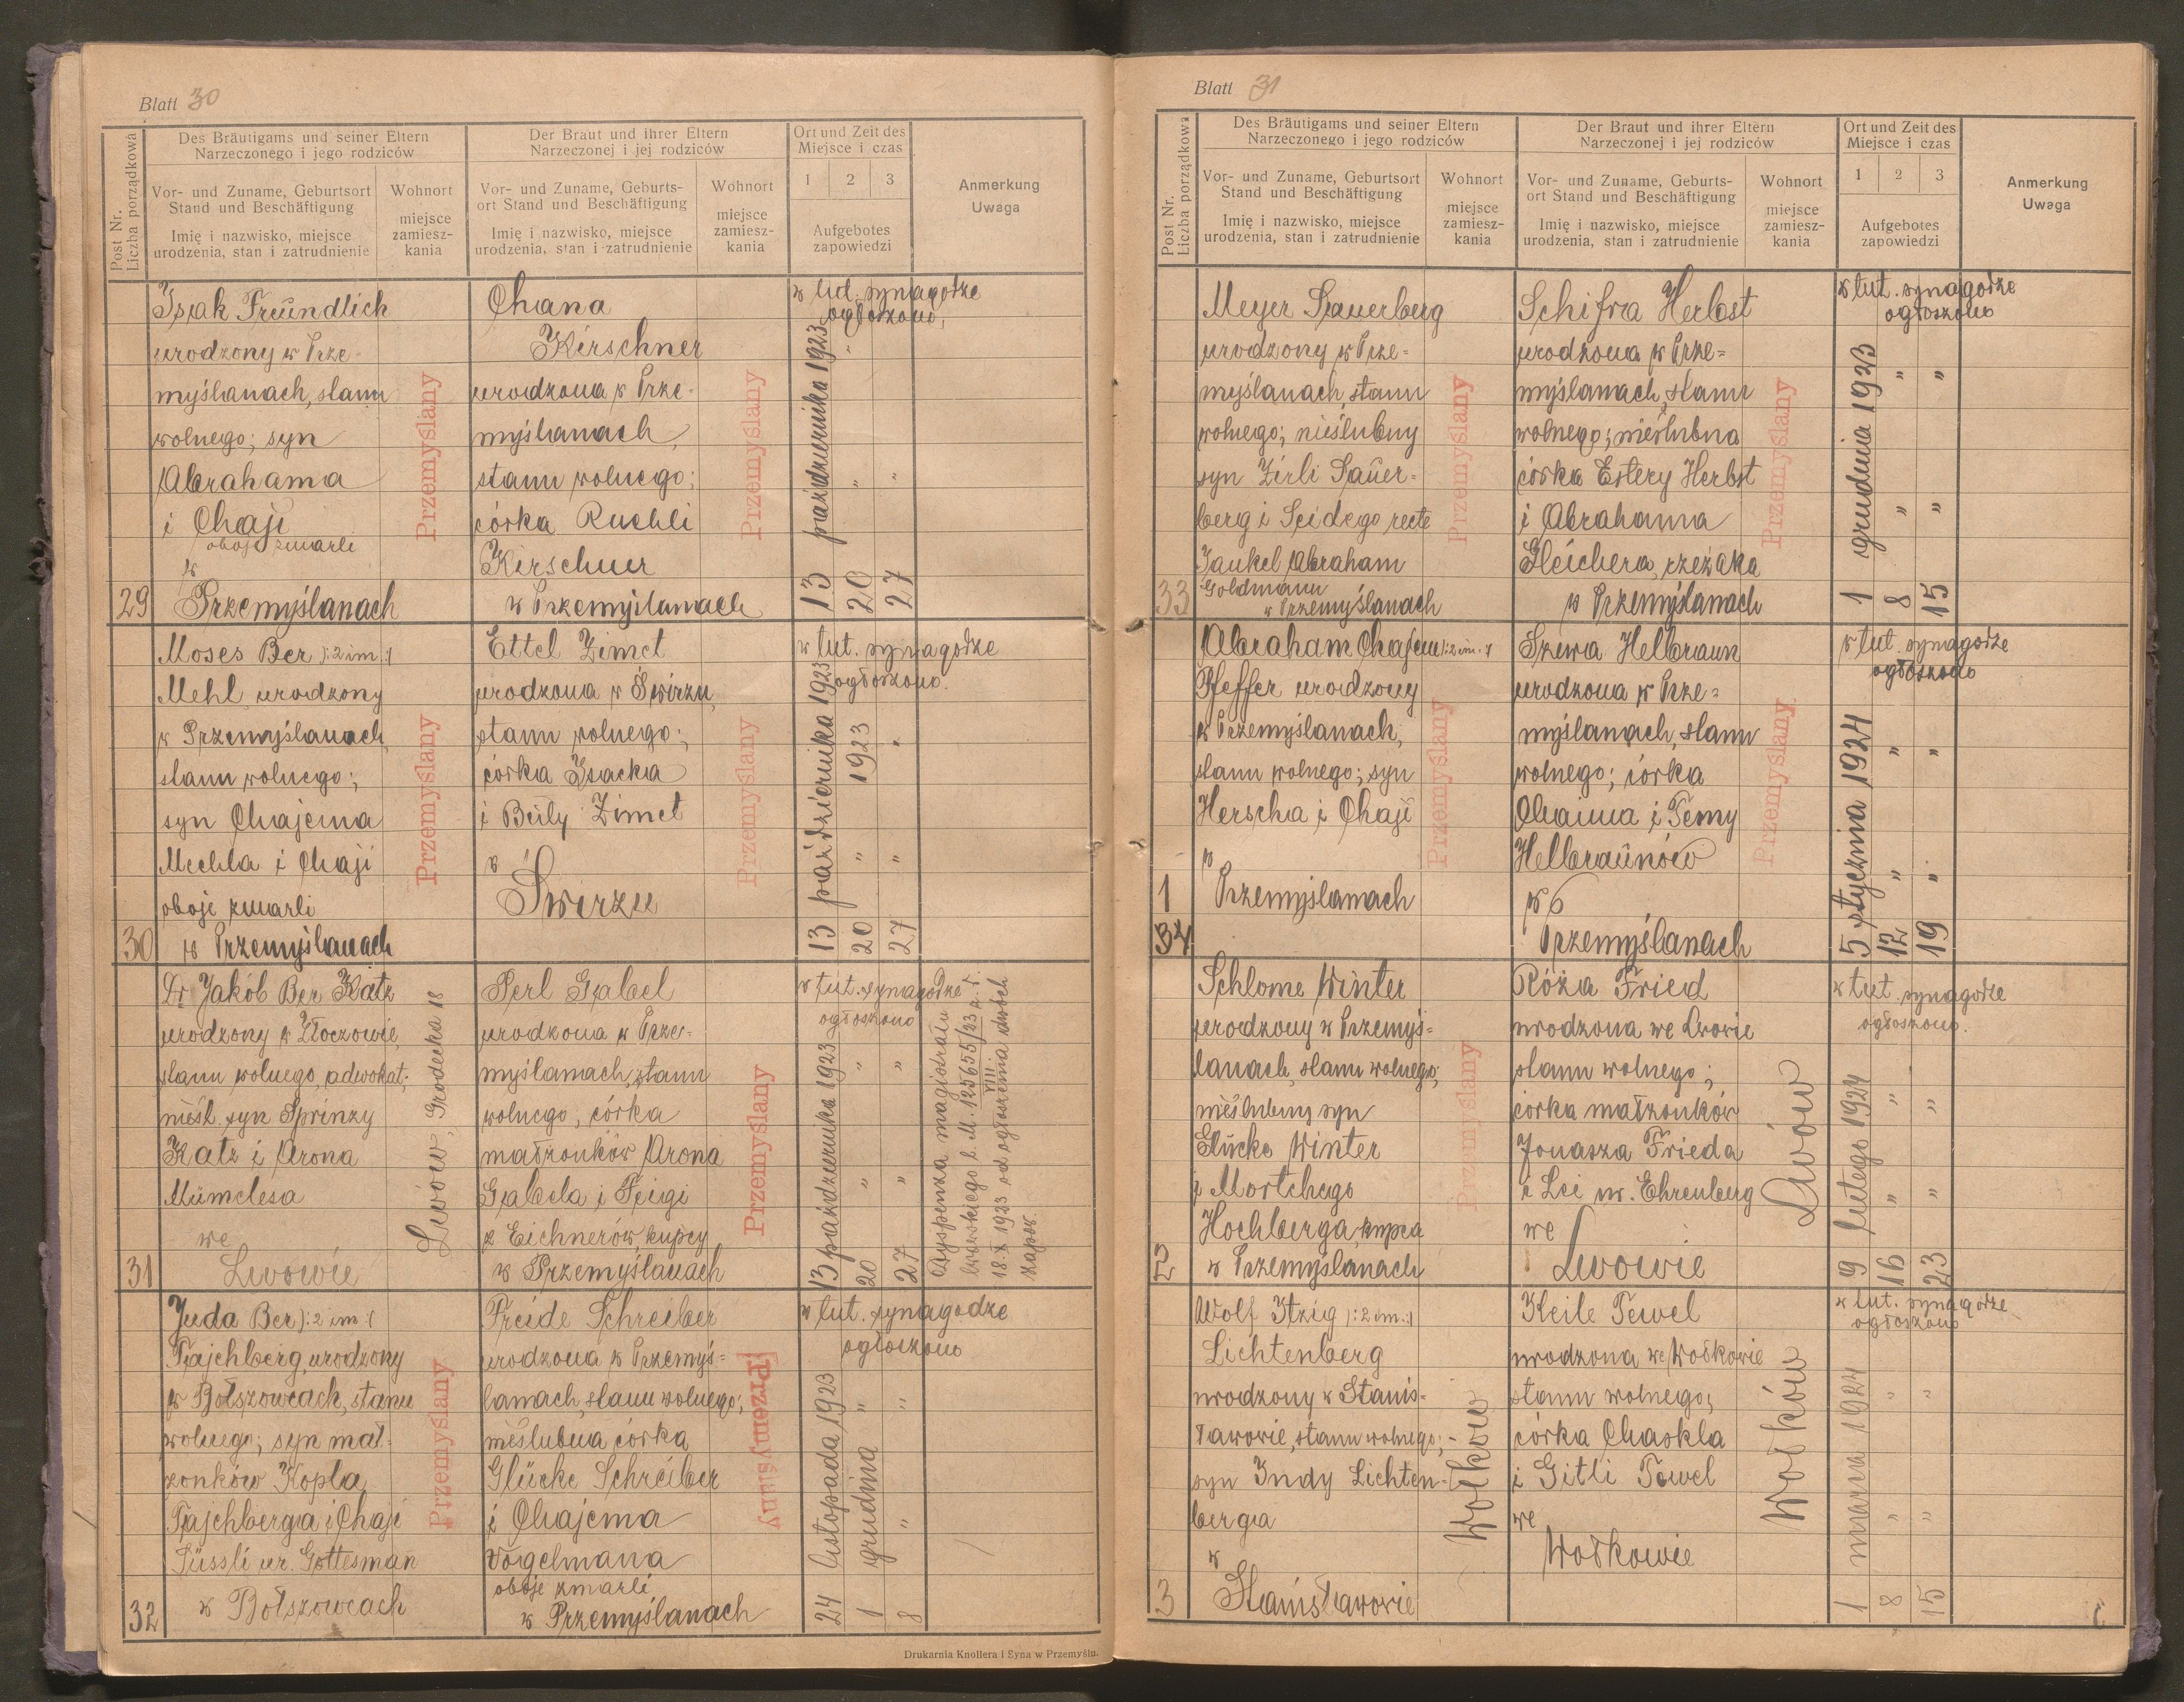 Blatt 30
Post Nr.
Liczba porządkowa
Des Bräutigams und seiner Eltern
Narzeczonego i jego rodziców
Der Braut und ihrer Eltern
Narzeczonej i jej rodziców
Ort und Zeit des
Miejsce i czas
Vor- und Zuname, Geburtsort
Stand und Beschäftigung
Imię i nazwisko, miejsce
urodzenia, stan i zatrudnienie
Wohnort
miejsce
zamiesz-
kania
Vor- und Zuname, Geburts-
ort Stand und Beschäftigung
Imię i nazwisko, miejsce
urodzenia, stan i zatrudnienie
Wohnort
miejsce
zamiesz-
kania
1 2 3
Aufgebotes
zapowiedzi
Anmerkung
Uwaga
29
Isak Freundlich
urodzony w Prze-
myślanach, stanu
wolnego; syn
Abrahama
i Chaji
oboje zmarli
w
Przemyślanach
Przemyślany
Chana
Kirschner
urodzona w Prze-
myślanach,
stanu wolnego;
córka Ruchli
Kirschner
w Przemyślanach
Przemyślany
w tut. synagodze
ogłoszono,
13 października 1923
20 " "
27 "
30
Moses Ber /:2 im:/
Mehl urodzony
w Przemyślanach,
stanu wolnego;
syn Chajema
Mechla i Chaji
oboje zmarli
w Przemyślanach
Przemyślany
Ettel Zimet
urodzona w Świrzu,
stanu wolnego;
córka Isacka
i Beily Zimet
w
Świrzu
Przemyślany
w tut. synagodze
ogłoszono.
13 października 1923
20 " 1923
27 " "
31
Dr Jakób Ber Katz
urodzony w Złoczowie,
stanu wolnego, adwokat;
nieśl. syn Sprinzy
Katz i Arona
Mümelesa
we
Lwowie
Lwów, Grodecka 18
Perl Gabel
urodzona w Prze-
myślanach, stanu
wolnego, córka
małżonków Arona
Gabela i Feigi
z Eichnerów, kupcy
w Przemyślanach
Przemyślany
w tut. synagodze
ogłoszono
13 października 1923
20 " "
27 " "
Dyspenza magistratu
lwowskiego l. M. 125655/23 z d.
VIII
18.X 1923 od ogłoszenia dwóch
zapow.
32
Juda Ber /:2 im:/
Tajchberg, urodzony
w Bołszowcach, stanu
wolnego; syn mał-
żonków Kopla
Tajchberga i Chaji
Süssli ur. Gottesman
w Bołszowcach
Przemyślany
Freide Schreiber
urodzona w Przemyś-
lanach, stanu wolnego;
nieślubna córka
Glücke Schreiber
i Chajema
Vogelmana
oboje zmarli
w Przemyślanach
Przemyślany
w tut. synagodze
ogłoszono
24 listopada 1923
1 grudnia "
8 " "
Drukarnia Knollera i Syna w Przemyślu.
Blatt 31
Post Nr.
Liczba porządkowa
Des Bräutigams und seiner Eltern
Narzeczonego i jego rodziców
Der Braut und ihrer Eltern
Narzeczonej i jej rodziców
Ort und Zeit des
Miejsce i czas
Vor- und Zuname, Geburtsort
Stand und Beschäftigung
Imię i nazwisko, miejsce
urodzenia, stan i zatrudnienie
Wohnort
miejsce
zamiesz-
kania
Vor- und Zuname, Geburts-
ort Stand und Beschäftigung
Imię i nazwisko, miejsce
urodzenia, stan i zatrudnienie
Wohnort
miejsce
zamiesz-
kania
1 2 3
Aufgebotes
zapowiedzi
Anmerkung
Uwaga
33
Meyer Sauerberg
urodzony w Prze=
myślanach, stanu
wolnego; nieślubny
syn Zirli Sauer=
berg i Seidego recte
Jankel Abraham
Goldmann
w Przemyślanach
Przemyślany
Schifra Herbst
urodzona w Prze=
myślanach, stanu
wolnego; nieślubna
córka Estery Herbst
i Abrahama
Gleichera, rzezaka
w Przemyślanach
Przemyślany
w tut. synagodze
ogłoszono
1 grudnia 1923
8 " "
15 " "
1
34
Abraham Chajem /:2 im:/
Pfeffer urodzony
w Przemyślanach,
stanu wolnego; syn
Herscha i Chaji
w
Przemyślanach
Przemyślany
Szewa Helbraun
urodzona w Prze=
myślanach, stanu
wolnego; córka
Chaima i Temy
Helbraunów
w
Przemyślanach
Przemyślany
w tut. synagodze
ogłoszono
5 stycznia 1924
12 " "
19 " "
Schlome Winter
urodzony w Przemyś=
lanach, stanu wolnego;
nieślubny syn
Glücke Winter
i Mortchego
Hochberga, kupca
w Przemyślanach
Przemyślany
Róża Fried
urodzona we Lwowie
stanu wolnego;
córka małżonków
Jonasza Frieda
i Lei ur. Ehrenberg
we
Lwowie
Lwów
w tut. synagodze
ogłoszono.
9 lutego 1924
16 " "
23 " "
3
Wolf Itzig /:2 im:/
Lichtenberg
urodzony w Stanis-
ławowie, stanu wolnego;
syn Indy Lichten-
berga
w
Stanisławowie
Wołków
Keile Tewel
urodzona we Wołkowie
stanu wolnego;
córka Chaskla
i Gitli Tewel
we
Wołkowie
Wołków
w tut. synagodze
ogłoszono
1 marca 1924
8 " "
15 " "